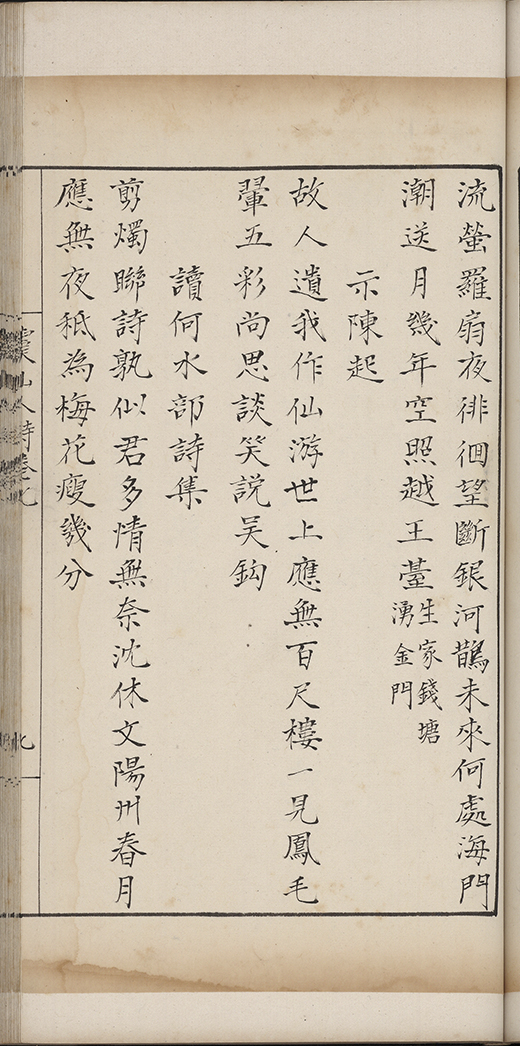 流螢羅扇夜徘徊望斷銀河鵲未來何處海門
潮送月幾年空照越王臺生家錢塘
湧金門
示陳起
故人遺我作仙游世上應無百尺樓一見鳳毛
翬五彩尚思談笑説吴鈎
讀何水部詩集
剪燭聯詩孰似君多情無奈沈休文陽州春月
應無夜秪為梅花瘦幾分